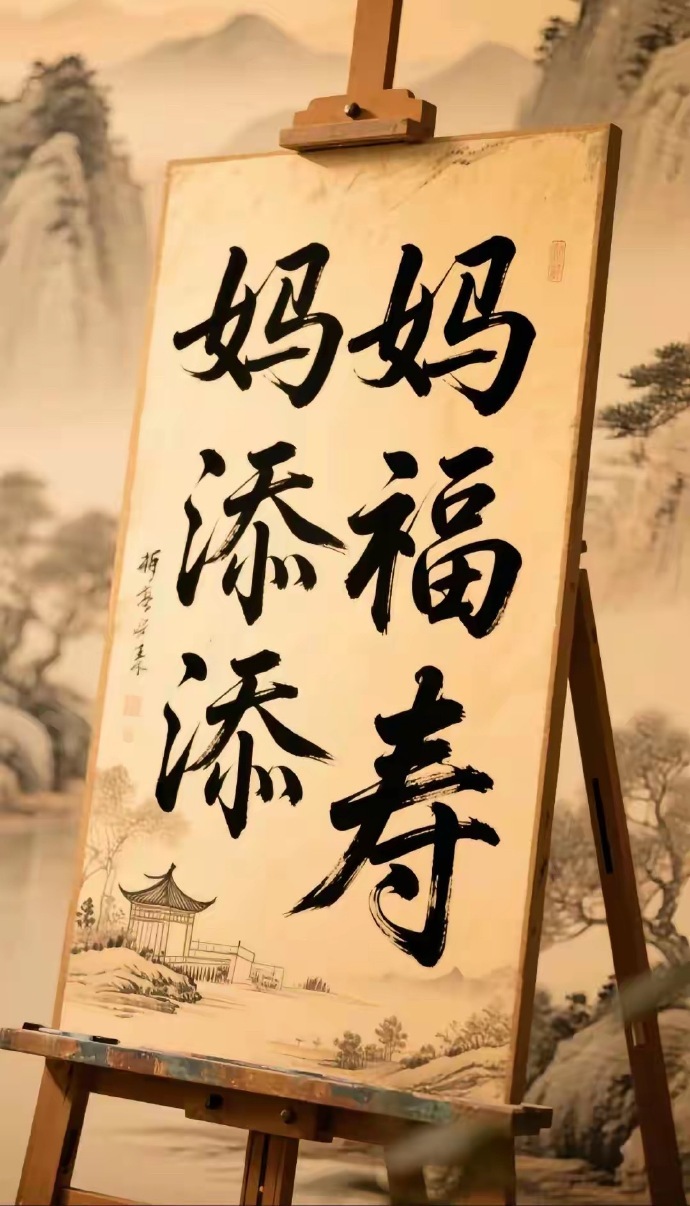 妈妈
添福
添寿